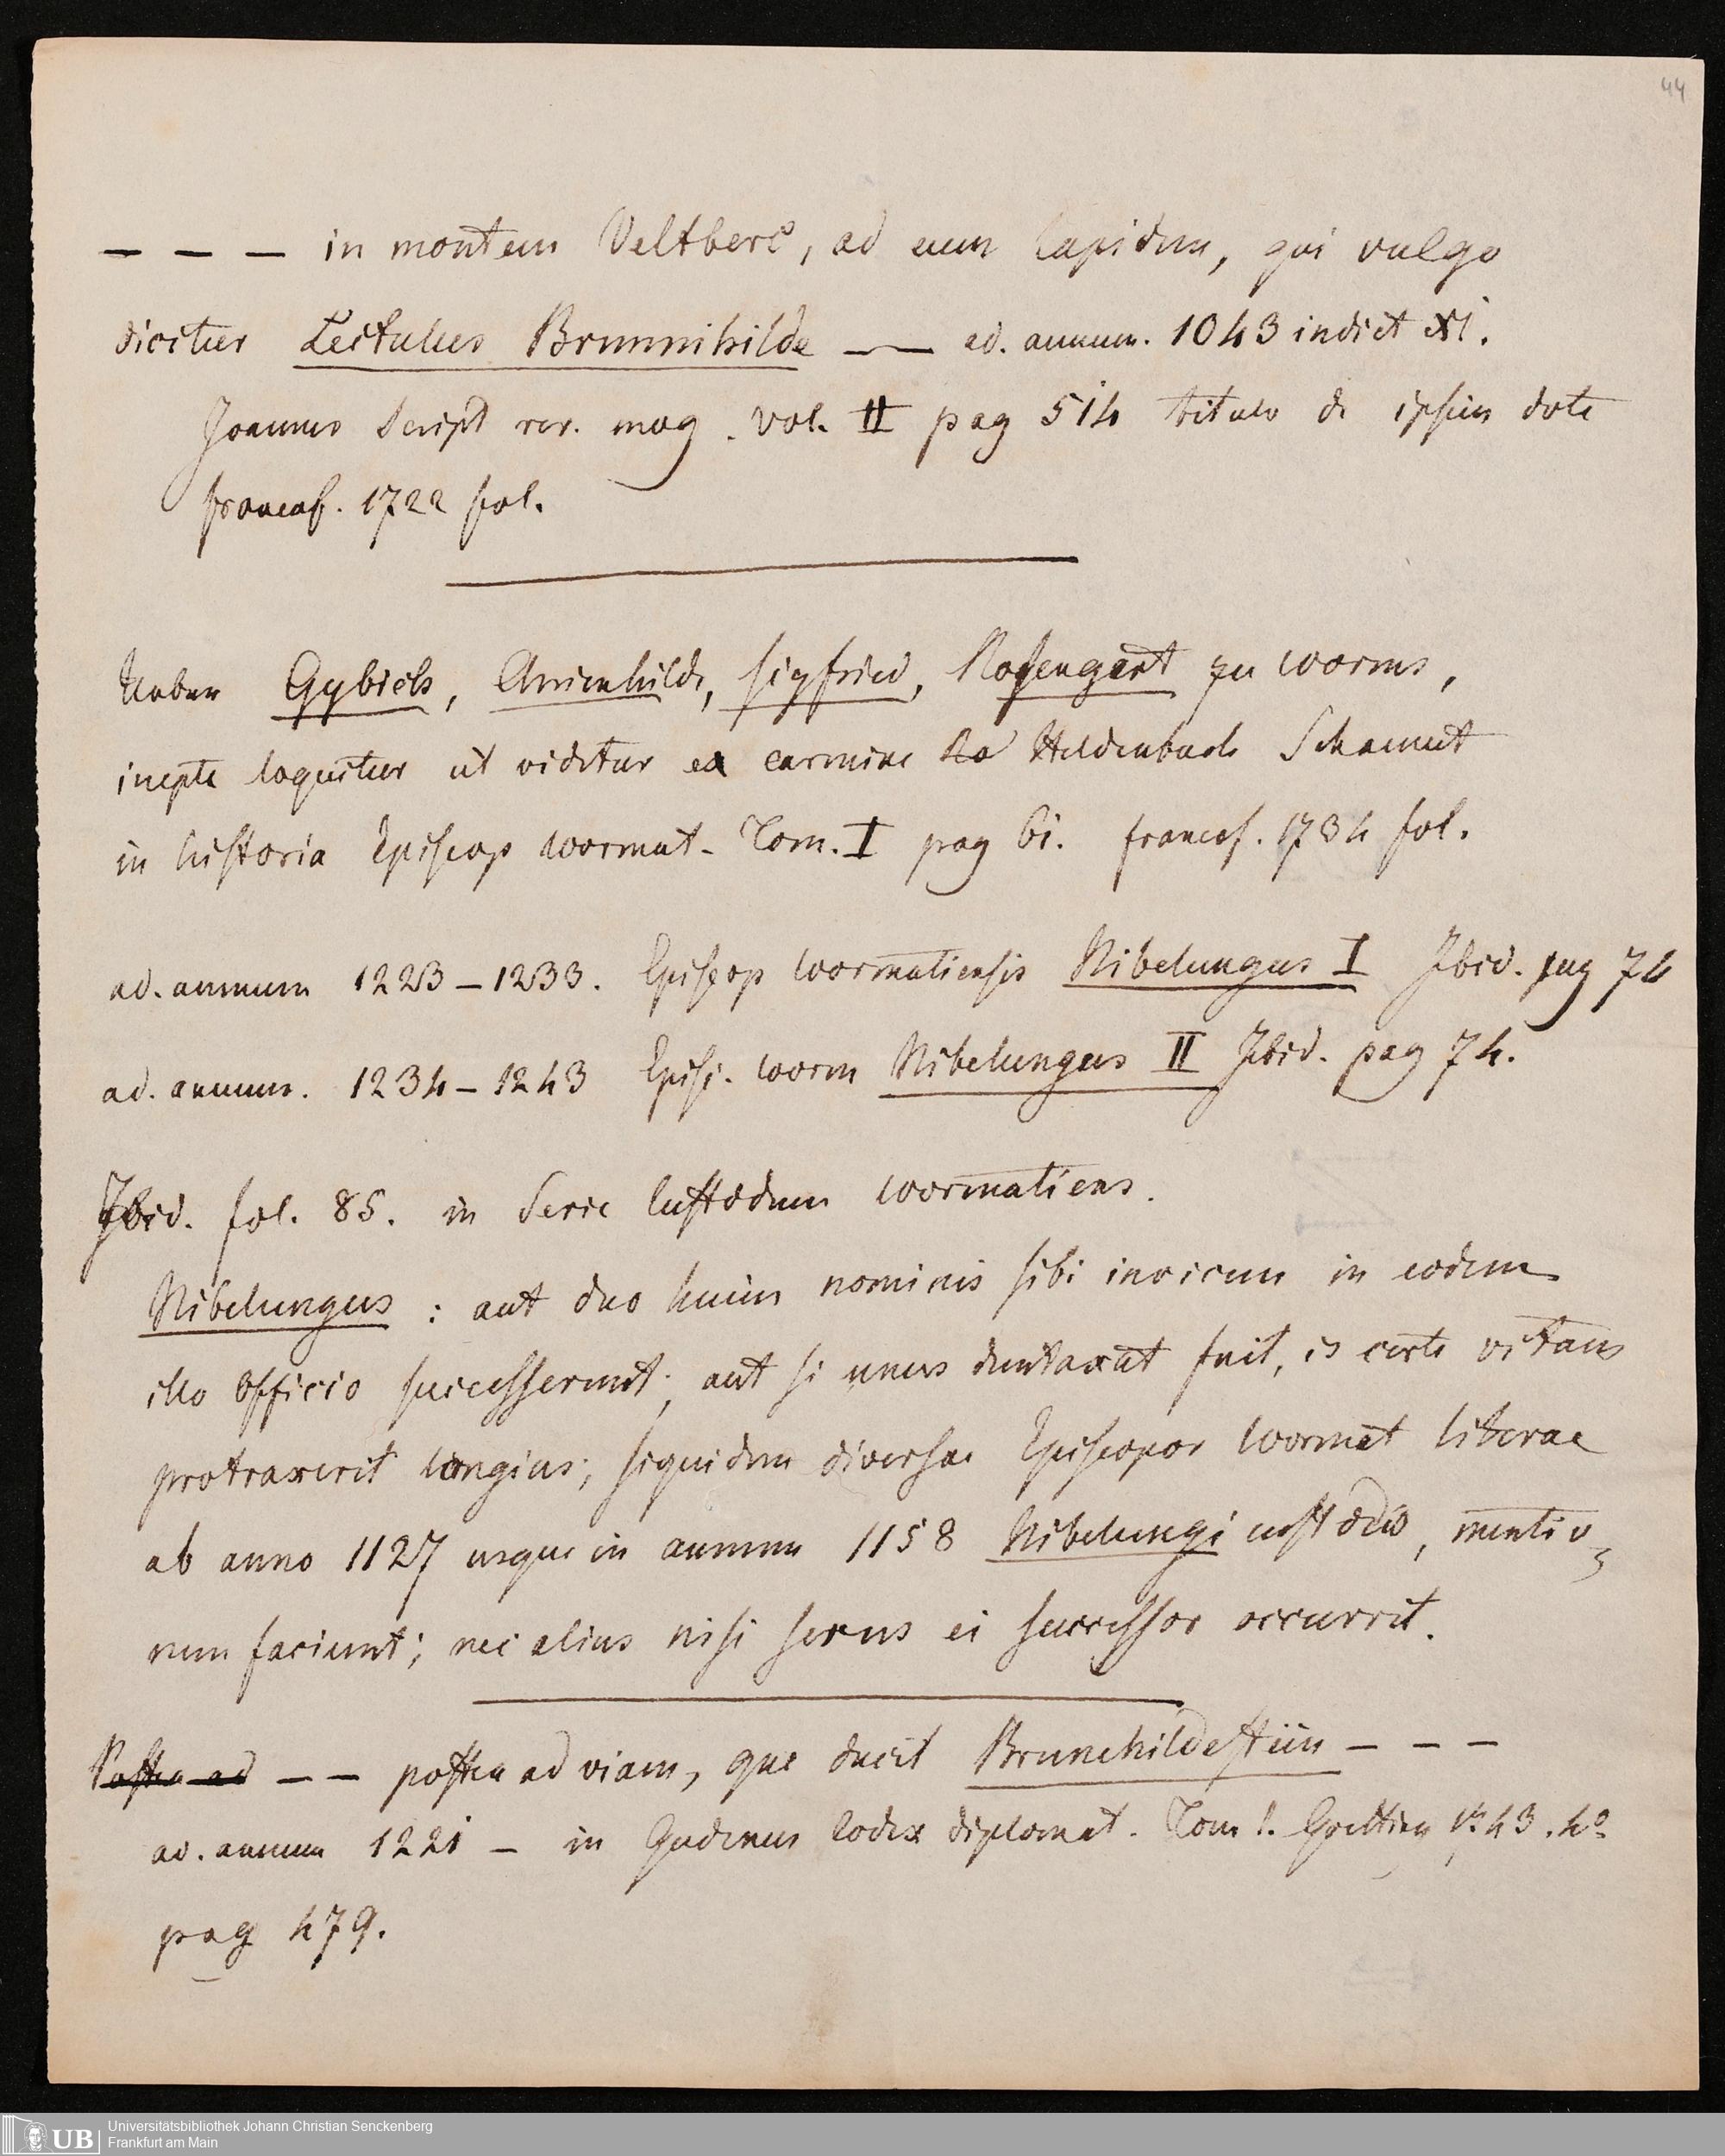 44
— — — in montem Veltberc, ad eum lapidem, qui vulgo
dicitur Lectulus Brunnihilde —— ad. annum. 1043 indict XI.
Joannes Script rer. mog. vol. II pag 514 titulo de ipsius dote
francof. 1722 fol.
Ueber Gybichs, Chriemhilde, Sigfried, Rosengart zu Worms,
inepte loquitur ut videtur ex carmine Heldenbuch Schannat
in historia Episcop Wormat. Tom. I pag 61. francof. 1734 fol.
ad. annum 1223–1233. Episcop Wormatiensis Nibelungus I Ibid. pag 74
ad. annum. 1234–1243 Episc. Worm Nibelungus II Ibid. pag 74.
Ibid. fol. 85. in Serie Custodum Wormatiens.
Nibelungus : aut duo huius nominis sibi invicem in eodem
illo officio successerunt; aut si unus duntaxat fuit, is certe vitam
protraxerit longius; siquidem diversae Episcopor Wormat literae
ab anno 1127 usque in annum 1158 Nibelungi custodis, mentio-
nem faciunt; nec alius nisi serus ei successor occurrit.
Postea ad — — postea ad viam, que ducit Brunehildestein — — —
ad. annum 1221 — in Gudenus Codex diplomat. Tom I. Goetting 1743. 4º
pag 479.
Universitätsbibliothek Johann Christian Senckenberg
Frankfurt am Main
UB